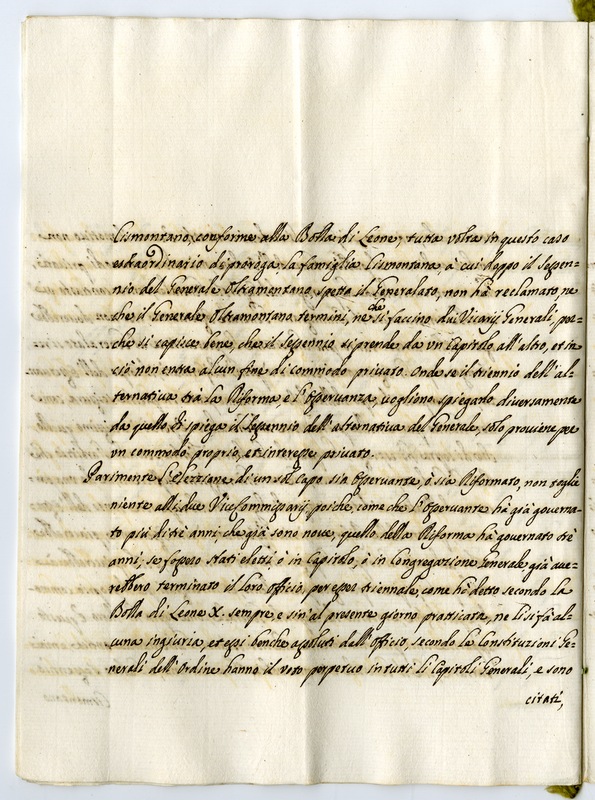 Cismontano, conforme alla Bolla di Leone, tutta volta in questo caso
estraordinario di proroga, la famiglia Cismontana, à cui doppo il sessen-
nio del Generale Oltramontano spetta il Generalato, non hà reclamato, ne
che il Generale Oltramontano termini, ne che si faccino dui Vicarij Generali, poi-
che si capisce bene, che il sessennio si prende da un Capitolo all'altro, et in
ciò non entra alcun fine di commodo privato. Onde se il triennio dell'al-
ternativa trà la Riforma, e l'Osservanza, vogliono spiegarlo diversamente
da quello si spiega il sessennio dell'alternativa del Generale, solo proviene per
un commodo proprio, et interesse privato.
Parimente l'elezzione di un sol capo sia Osservante, ò sia Riformato, non toglie
niente alli due ViceCommissarij, poiche, come che l'Osservante hà già governa-
to più di trè anni, che già sono nove, quello della Riforma hà governato trè
anni, se fossero stati eletti, ò in Capitolo, ò in Congregazione Generale già ave-
rebbero terminato il loro officio, per esser triennale, come hò detto secondo la
Bolla di Leone X. sempre, e sin'al presente giorno pratticata, ne li si fà al-
cuna ingiuria, et essi benche assoluti dell'officio, secondo le Constituzioni Ge-
nerali dell'Ordine hanno il voto perpetuo in tutti li Capitoli Generali, e sono
citati,